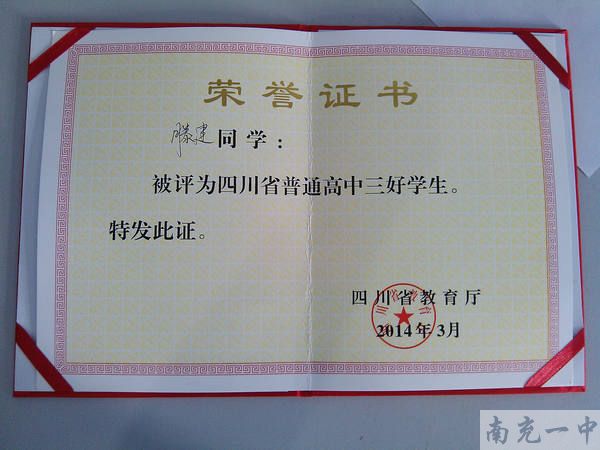 荣誉证书
滕建同学：
被评为四川省普通高中三好学生。
特发此证。
四川省教育厅
2014年3月
南充一中